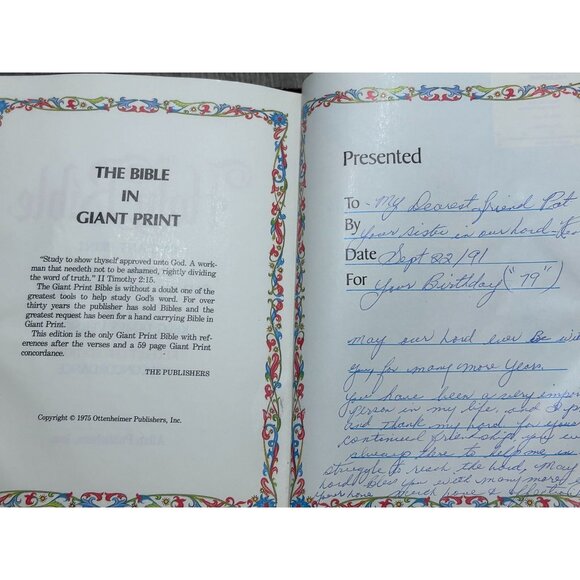 THE BIBLE
IN
GIANT PRINT
"Study to show thyself approved unto God. A work-
man that needeth not to be ashamed, rightly dividing
the word of truth." II Timothy 2:15.
The Giant Print Bible is without a doubt one of the
greatest tools to help study God's word. For over
thirty years the publisher has sold Bibles and the
greatest request has been for a hand carrying Bible in
Giant Print.
This edition is the only Giant Print Bible with ref-
erences after the verses and a 59 page Giant Print
concordance.
THE PUBLISHERS
Copyright © 1975 Ottenheimer Publishers, Inc.
Presented
To My Dearest friend Pat
By Your sister in our Lord
Date Sept 22/91
For Your Birthday ("79")
May our Lord ever Be with
you for many more years.
You have been a very
person in my life, and I
and thank my Lord for your
continued friendship, you
there to help me in
struggle to reach the Lord, May
Lord Bless you with many more
your love. Much love &